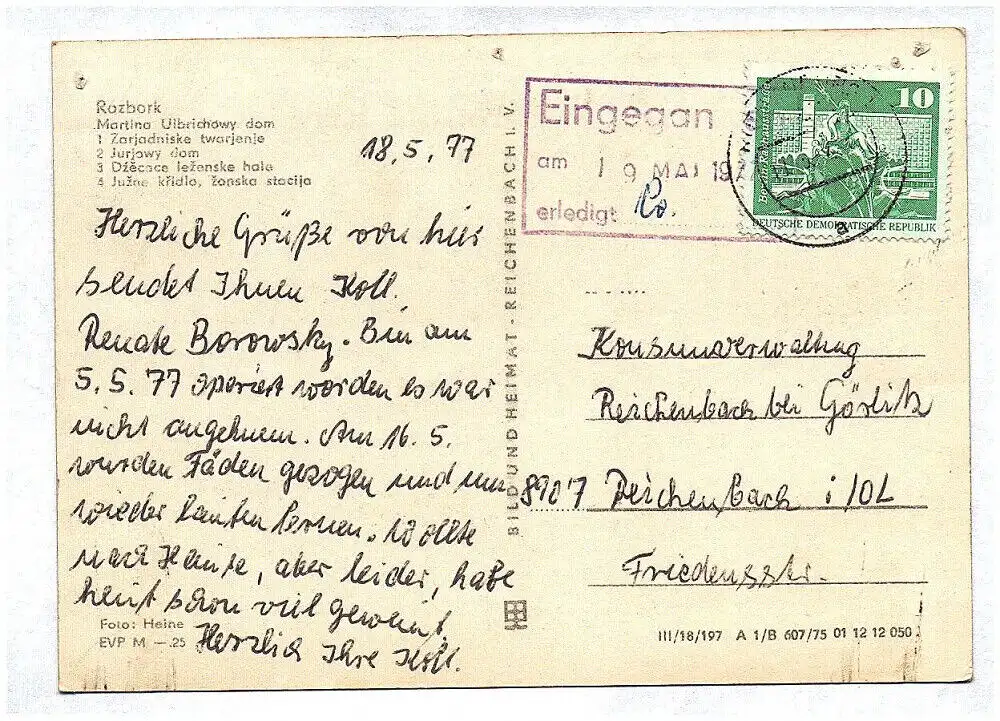 Rozbork
Martina Ulbrichowy dom
1 Zarjadniske twarjenje
2 Jurjowy dom
3 Dźěcace leženske hale
4 Južne křidło, žonska stacija
18.5.77
Herzliche Grüße von hier
sendet Ihnen Koll.
Renate Borowsky. Bin am
5.5.77 operiert worden es war
nicht angenehm. Am 16.5.
wurden Fäden gezogen und nun
wieder laufen lernen. Wollte
nach Hause, aber leider, habe
heut schon viel geweint.
Herzlich Ihre Koll.
Foto: Heine
EVP M —.25
BILD UND HEIMAT · REICHENBACH I. V.
Eingegan
am 19 MAI 197
erledigt
10
DEUTSCHE DEMOKRATISCHE REPUBLIK
Konsumverwaltung
Reichenbach bei Görlitz
8907 Reichenbach i/OL
Friedensstr.
III/18/197 A 1/B 607/75 01 12 12 050